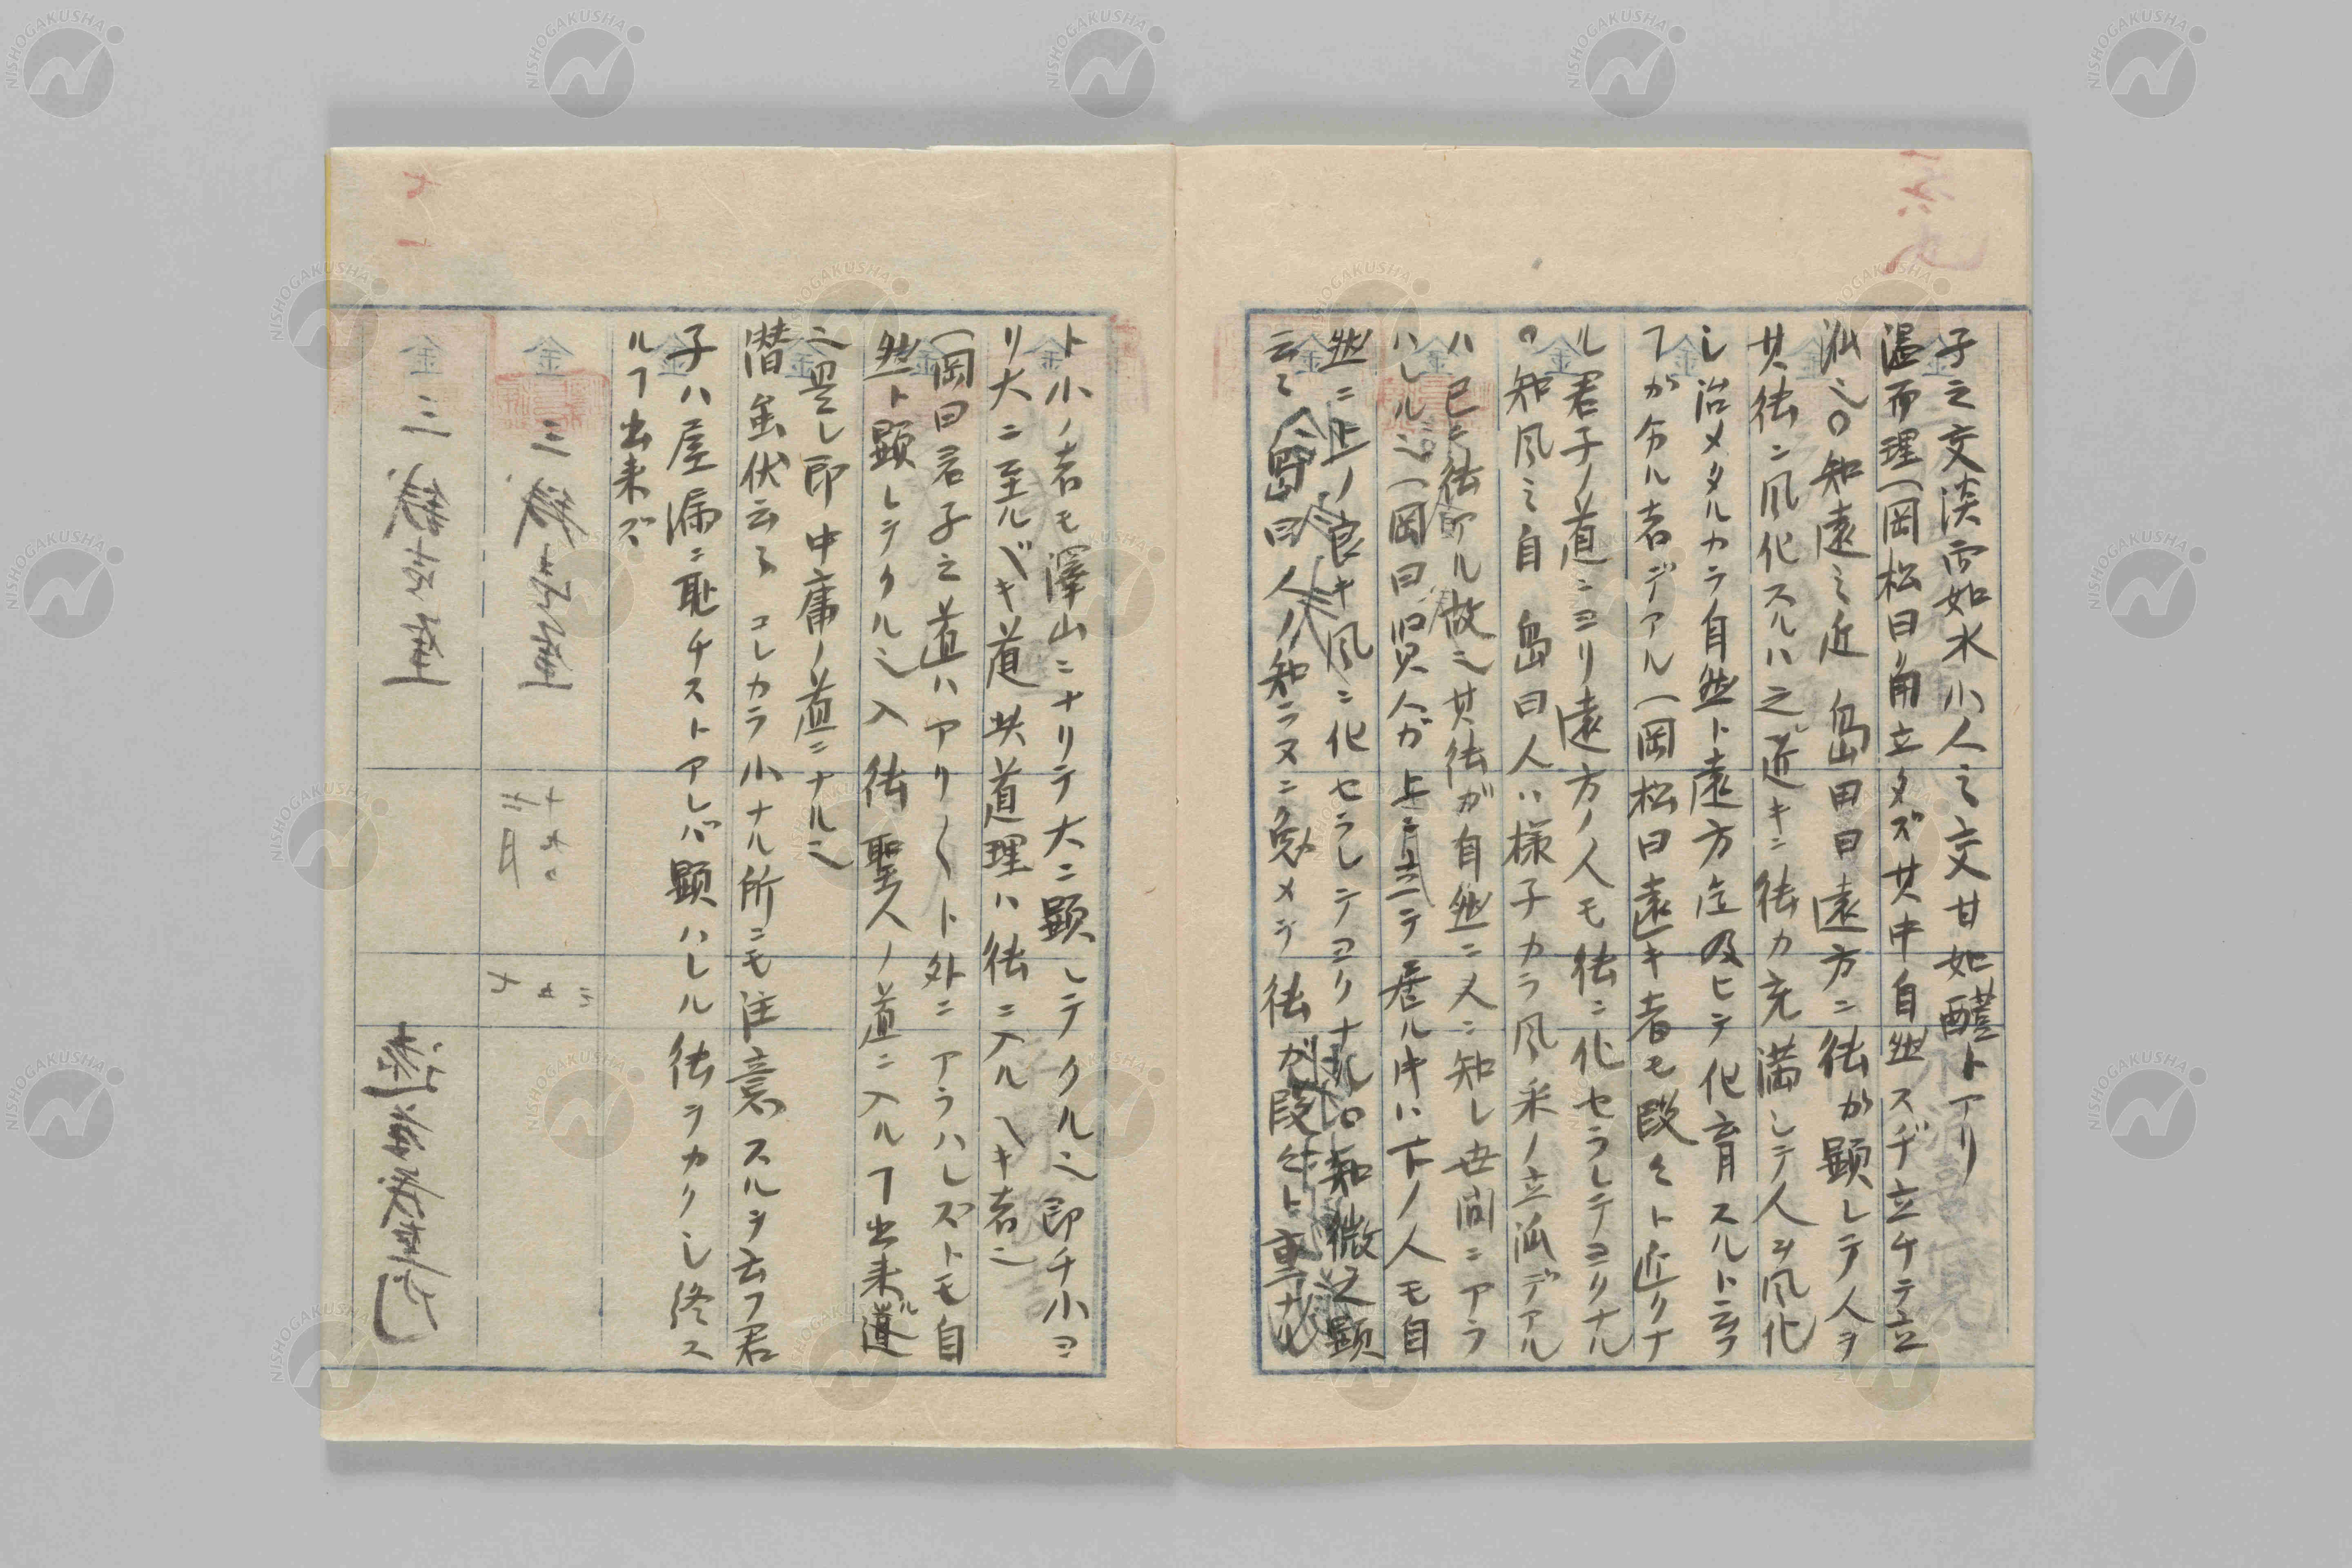 子之交淡而如水小人之交甘如醴トアリ
温而理(岡松曰角立タズ其中自然スヂ立チテ立
派也○知遠之近 島田曰遠方ニ徳が顕レテ人ヲ
其徳ニ風化スルハ之ル近キニ徳カ充満シテ人ヲ風化
シ治メタルカラ自然ト遠方迄及ヒテ化育スルト云フ
ヿが分ル者デアル(岡松曰遠キ者モ段々ト近クナ
ル君子ノ道ニヨリ遠方ノ人モ徳ニ化セラレテヨクナル
○知風之自 島曰人ハ様子カラ風采ノ立派デアル
ハ已ニ徳アル故也其徳ガ自然ニ人ニ知レ世間ニアラ
ハルル也(岡曰賢人ガ上ニ立テ居ル中ハ下ノ人モ自
然ニ上ノ良キ風ニ化セラレテヨクナル○知微之顕
云々 島曰人ノ知ラヌニ勉メテ徳ガ段々ト重ナル
ト小ノ者モ澤山ニナリテ大ニ顕レテクル也即チ小ヨ
リ大ニ至ルベキ道其道理ハ徳ニ入ルヘキ者也
(岡曰君子之道ハアリ〱ト外ニアラハレズトモ自
然ト顕レテクル也入徳聖人ノ道ニ入ルヿ出来ル道
也畢レ即中庸ノ道ニナル也
潜虽伏云々 コレカラ小ナル所ニモ注意スルヲ云フ君
子ハ屋漏ニ恥チストアレバ顕ハレル徳ヲカクシ終ス
ルヿ出来ズ
NISHOGAKUSHA